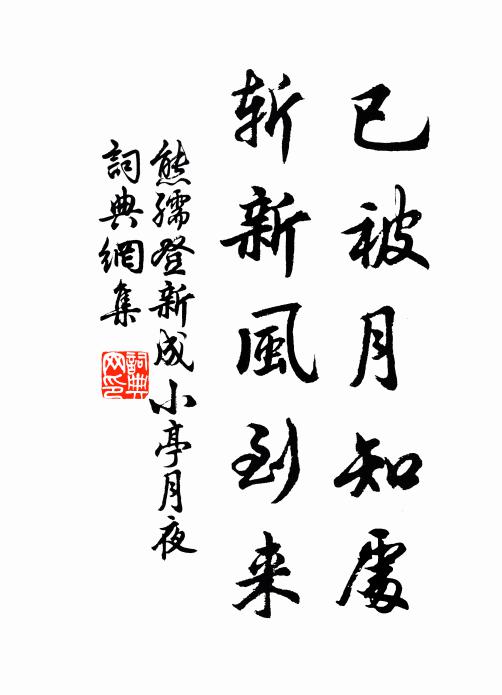 已被月知處
斬新風到来
熊孺登新成小亭月夜
詞典網集
詞典
网印